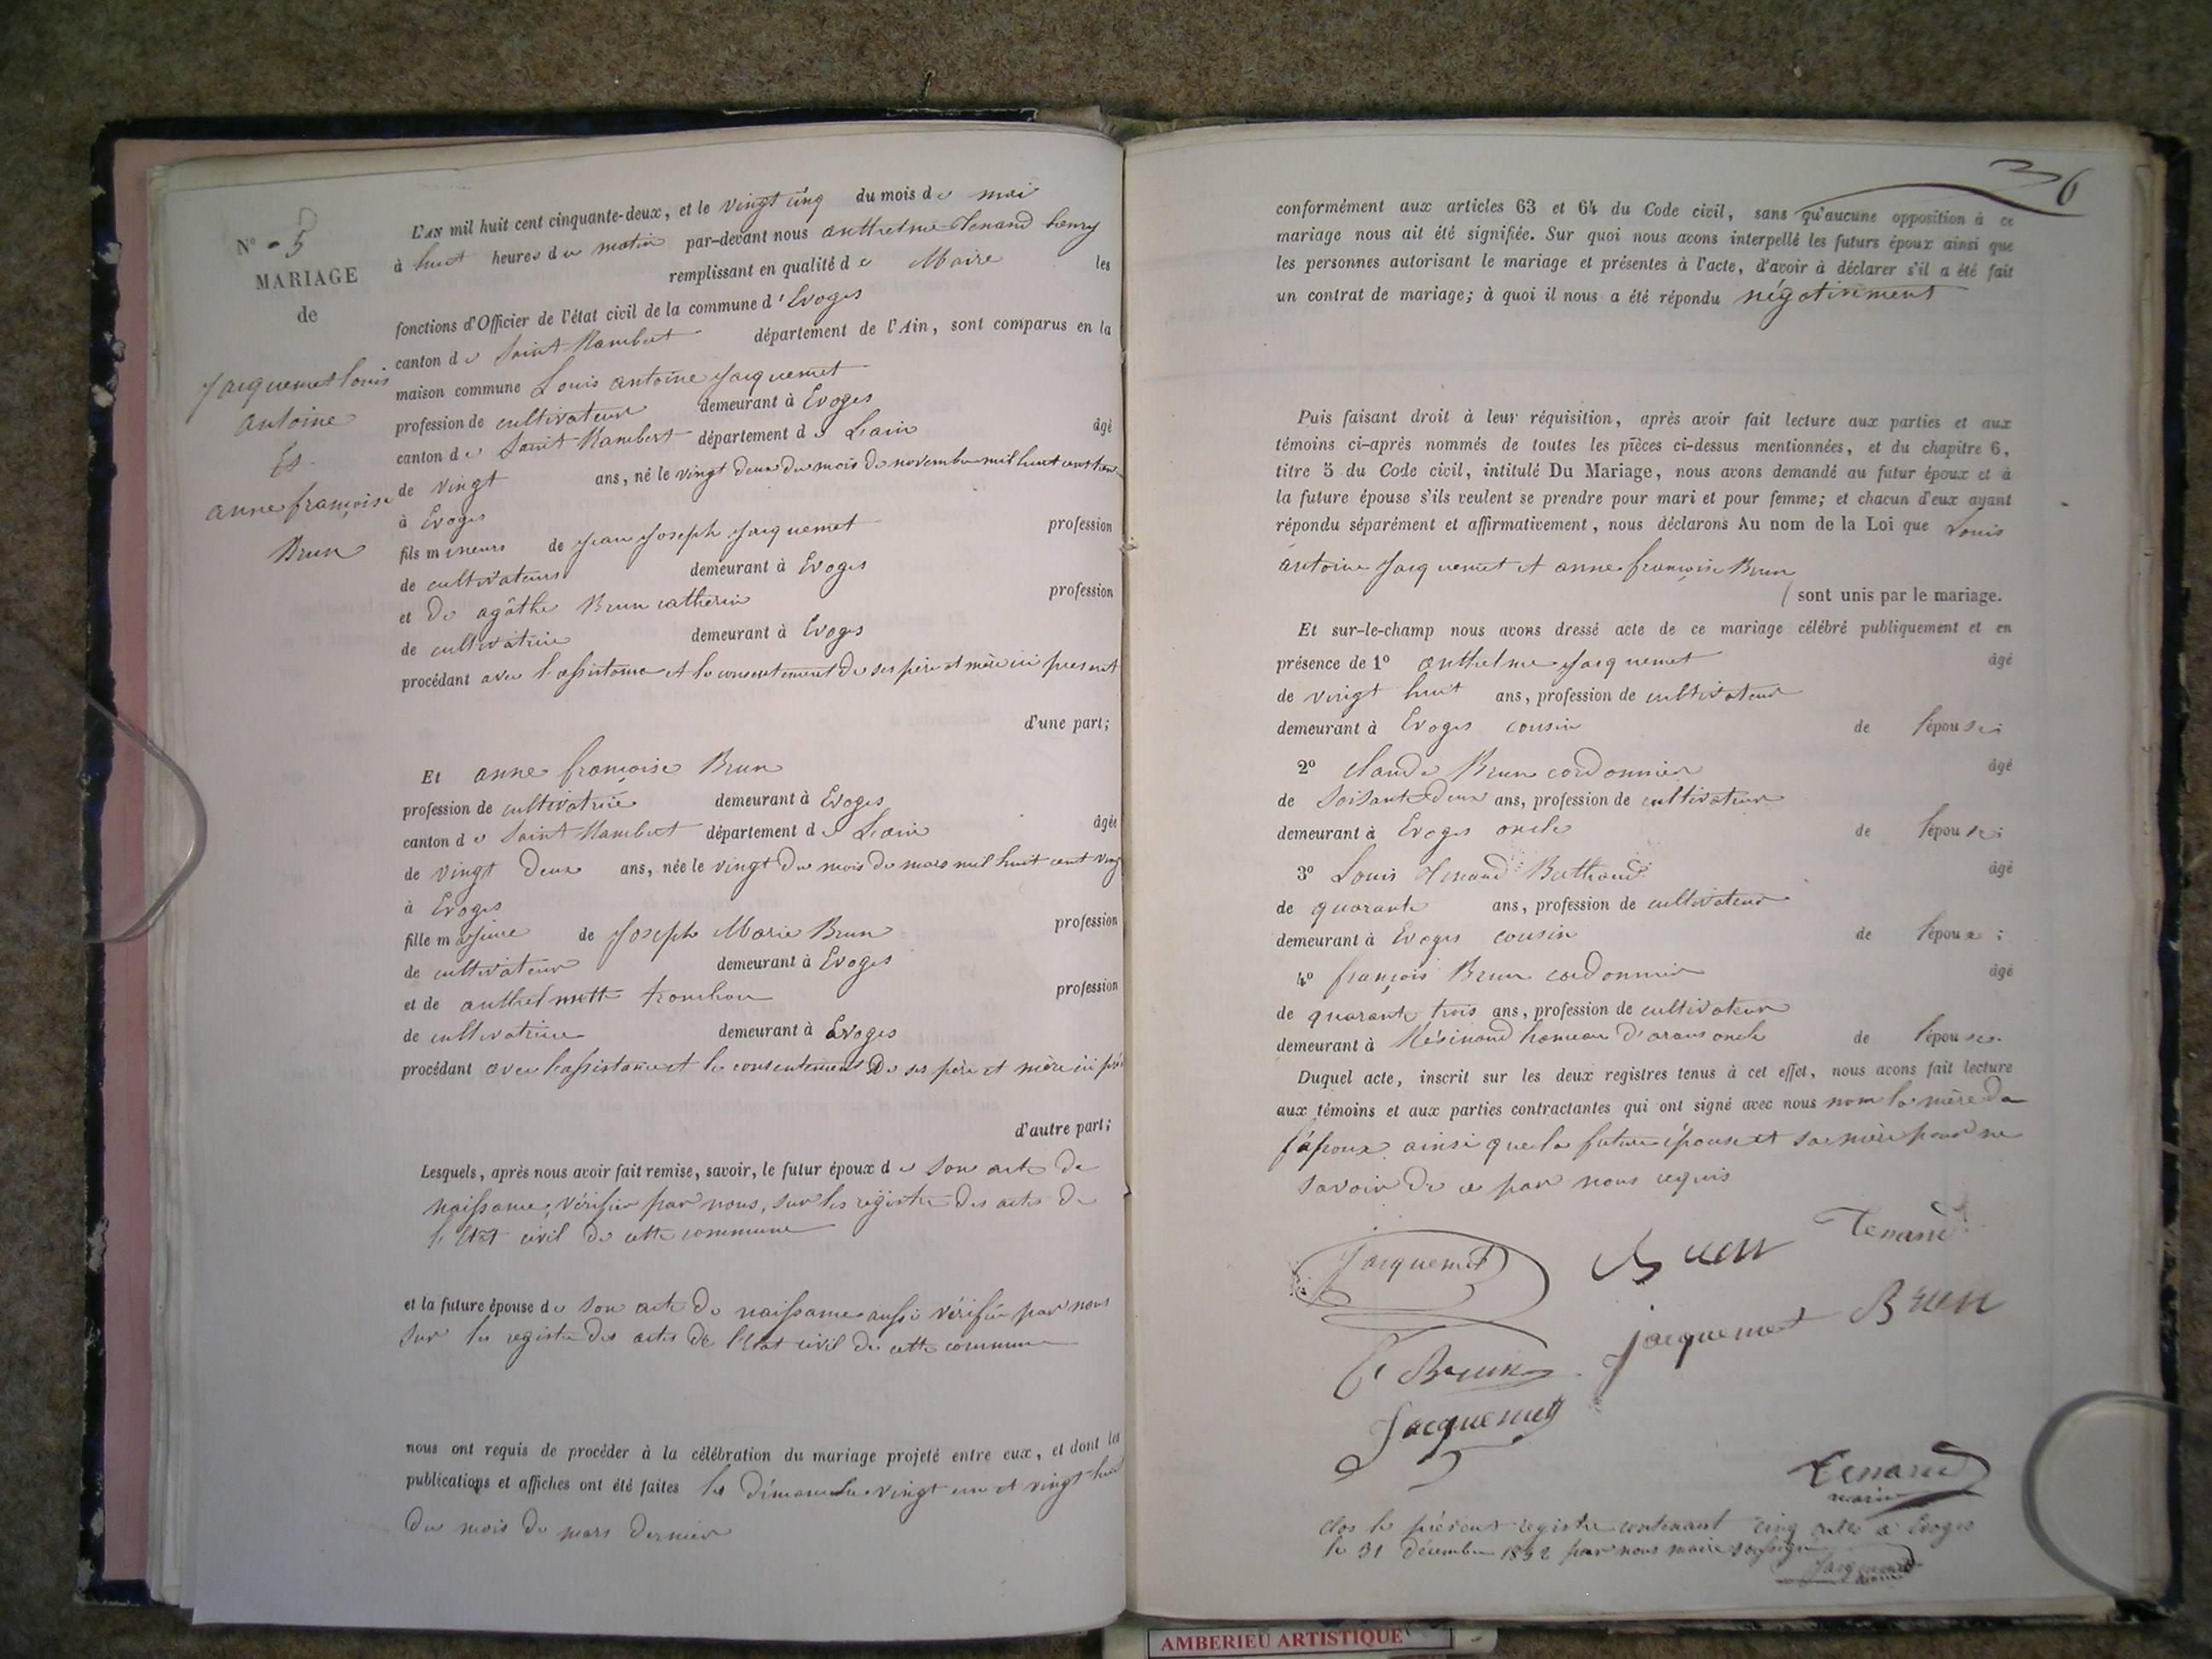 N° 5
MARIAGE
de
Jacquemet louis
antoine
Et
anne françoise
Brun
L'AN mil huit cent cinquante-deux, et le vingt cinq du mois de mai
à huit heures du matin par-devant nous anthelme Tenand henry
remplissant en qualité de Maire les
fonctions d'Officier de l'état civil de la commune d'Evoges
canton de Saint Rambert département de l'Ain, sont comparus en la
maison commune Louis antoine Jacquemet
profession de cultivateur demeurant à Evoges
canton de Saint Rambert département de Lain âgé
de vingt ans, né le vingt deux du mois de novembre mil huit cent
à Evoges
fils mineur de Jean Joseph Jacquemet profession
de cultivateur demeurant à Evoges
et de agâthe Brun catherin profession
de cultivatrice demeurant à Evoges
procédant avec l'assistance et le consentement de ses père et mère ici present
d'une part;
Et anne françoise Brun
profession de cultivatrice demeurant à Evoges
canton de Saint Rambert département de Lain âgée
de vingt deux ans, née le vingt du mois de mars mil huit cent
à Evoges
fille majeure de Joseph Marie Brun profession
de cultivateur demeurant à Evoges
et de anthelmette tronchon profession
de cultivatrice demeurant à Evoges
procédant avec l'assistance et le consentement de ses père et mère ici
d'autre part;
Lesquels, après nous avoir fait remise, savoir, le futur époux de son acte de
naissance, vérifier par nous, sur les registre des actes de
l'Etat civil de cette commune
et la future épouse de son acte de naissance aussi vérifié par nous
sur les registre des actes de l'Etat civil de cette commune
nous ont requis de procéder à la célébration du mariage projeté entre eux, et dont les
publications et affiches ont été faites les dimanche vingt un et vingt huit
du mois de mars dernier
36
conformément aux articles 63 et 64 du Code civil, sans qu'aucune opposition à ce
mariage nous ait été signifiée. Sur quoi nous avons interpellé les futurs époux ainsi que
les personnes autorisant le mariage et présentes à l'acte, d'avoir à déclarer s'il a été fait
un contrat de mariage; à quoi il nous a été répondu négativement
Puis faisant droit à leur réquisition, après avoir fait lecture aux parties et aux
témoins ci-après nommés de toutes les pièces ci-dessus mentionnées, et du chapitre 6,
titre 5 du Code civil, intitulé Du Mariage, nous avons demandé au futur époux et à
la future épouse s'ils veulent se prendre pour mari et pour femme; et chacun d'eux ayant
répondu séparément et affirmativement, nous déclarons Au nom de la Loi que Louis
antoine Jacquemet et anne françoise Brun
sont unis par le mariage.
Et sur-le-champ nous avons dressé acte de ce mariage célébré publiquement et en
présence de 1° anthelme Jacquemet âgé
de vingt huit ans, profession de cultivateur
demeurant à Evoges cousin de l'épouse;
2° claude Brun cordonnier âgé
de soisante deux ans, profession de cultivateur
demeurant à Evoges oncle de l'épouse;
3° Louis Tenand Berthand âgé
de quarante ans, profession de cultivateur
demeurant à Evoges cousin de l'époux;
4° françois Brun cordonnier âgé
de quarante trois ans, profession de cultivateur
demeurant à Résinand hameau d'arans oncle de l'épouse.
Duquel acte, inscrit sur les deux registres tenus à cet effet, nous avons fait lecture
aux témoins et aux parties contractantes qui ont signé avec nous non la mère de
l'époux ainsi que la future épouse et sa mère pour ne
savoir de ce par nous requis
Jacquemet Brun Tenand
Brun Jacquemet Brun
Jacquemet
Tenand
maire
Clos le présent registre contenant cinq actes à Evoges
le 31 décembre 1852 par nous maire soussigné
Jacquemet
maire
AMBERIEU ARTISTIQUE